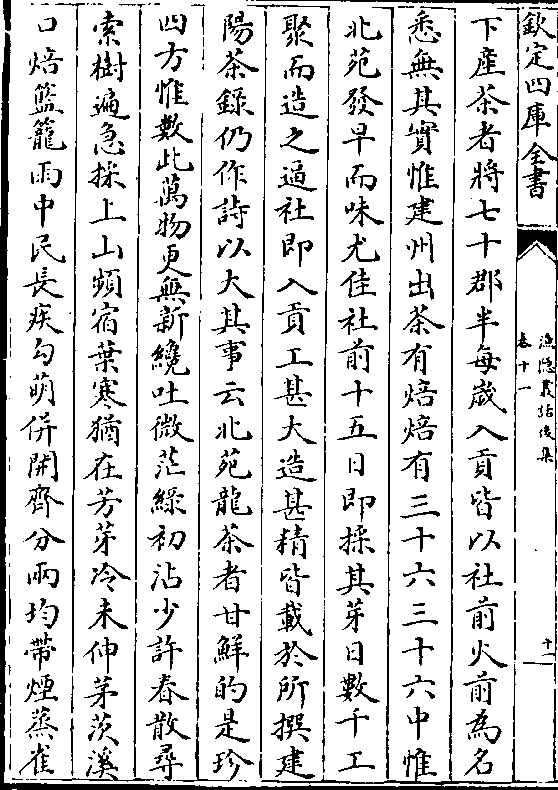 欽定四庫全書
漁隱叢話後集
卷十一
十一
下產茶者將七十郡半每歲入貢皆以社前火前為名
悉無其實惟建州出茶有焙焙有三十六三十六中惟
北苑發早而味尤佳社前十五日即採其芽日數千工
聚而造之逼社即入貢工甚大造甚精皆載於所撰建
陽茶錄仍作詩以大其事云北苑龍茶者甘鮮的是珍
四方惟數此萬物更無新纔吐微茫綠初沾少許春散尋
索樹遍急採上山頻宿葉寒猶在芳芽冷未伸茅茨溪
口焙籃籠雨中民長疾勾萌併開齊分兩均帶煙蒸雀